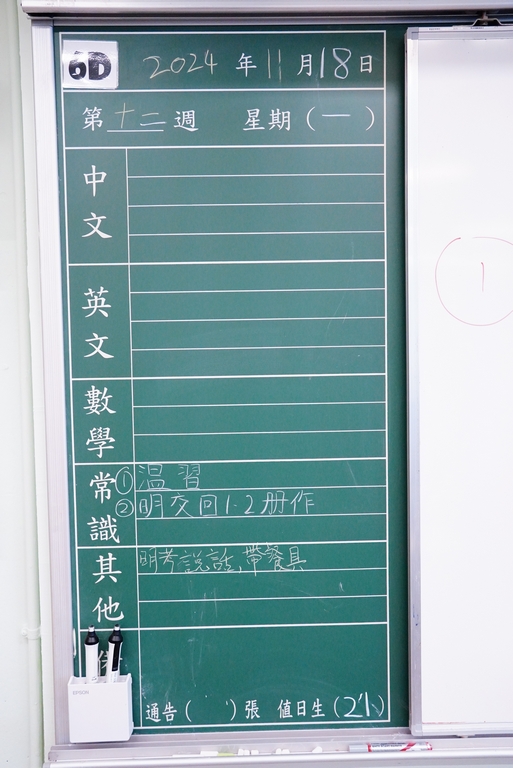 6D 2024 年 11 月 18 日
第 十二 週 星期 (一)
中文
英文
數學
常識
①温習
②明交回1.2册作
其他
明考說話、帶餐具
EPSON
通告( )張 值日生(21)
1